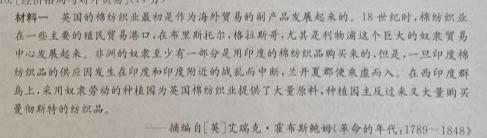 材料一 英国的棉纺织业最初是作为海外贸易的副产品发展起来的。18 世纪时,棉纺织业
在一些主要的殖民贸易港口,在布里斯托尔,格拉斯哥,尤其是利物浦这个巨大的奴隶贸易
中心发展起来。非洲的奴隶至少有一部分是用印度的棉纺织品购买来的,但是,一旦印度棉
纺织品的供应因发生在印度和印度附近的战乱而中断,兰开夏郡便乘虚而入。在西印度群
岛上,采用奴隶劳动的种植园为英国棉纺织业提供了大量原料,种植园主反过来又大量购买
曼彻斯特的纺织品。
——摘编自[英]艾瑞克·霍布斯鲍姆《革命的年代:1789—1848》